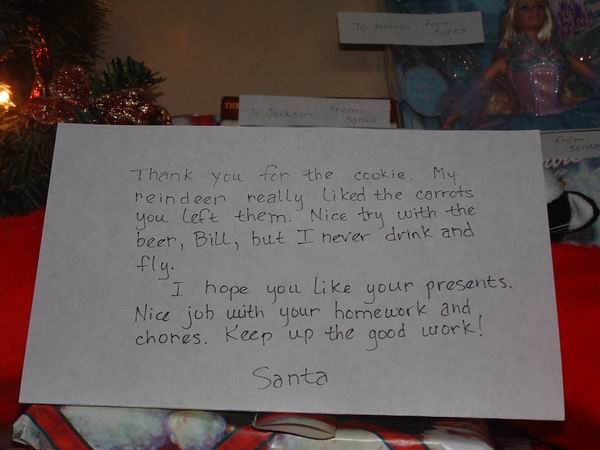 To: Naomi from: Santa
To: Jackson from: Santa
from: Santa
Thank you for the cookie. My
reindeer really liked the carrots
you left them. Nice try with the
beer, Bill, but I never drink and
fly.
I hope you like your presents.
Nice job with your homework and
chores. Keep up the good work!
Santa